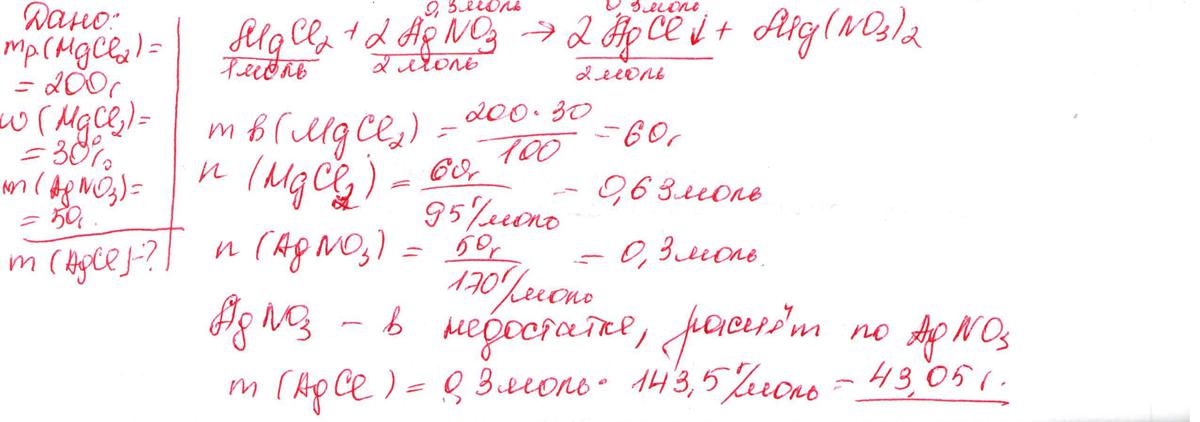 Дано:
mр(MgCl₂)=
= 200г
w(MgCl₂)=
= 30%
m(AgNO₃)=
= 50г
m(AgCl)-?
0,3моль 0,3моль
MgCl₂ + 2AgNO₃ → 2AgCl↓ + Mg(NO₃)₂
1моль 2моль 2моль
m в(MgCl₂) = 200·30/100 = 60г
n(MgCl₂) = 60г/95г/моль = 0,63моль
n(AgNO₃) = 50г/170г/моль = 0,3моль
AgNO₃ - в недостатке, расчёт по AgNO₃
m(AgCl) = 0,3моль · 143,5г/моль = 43,05г.